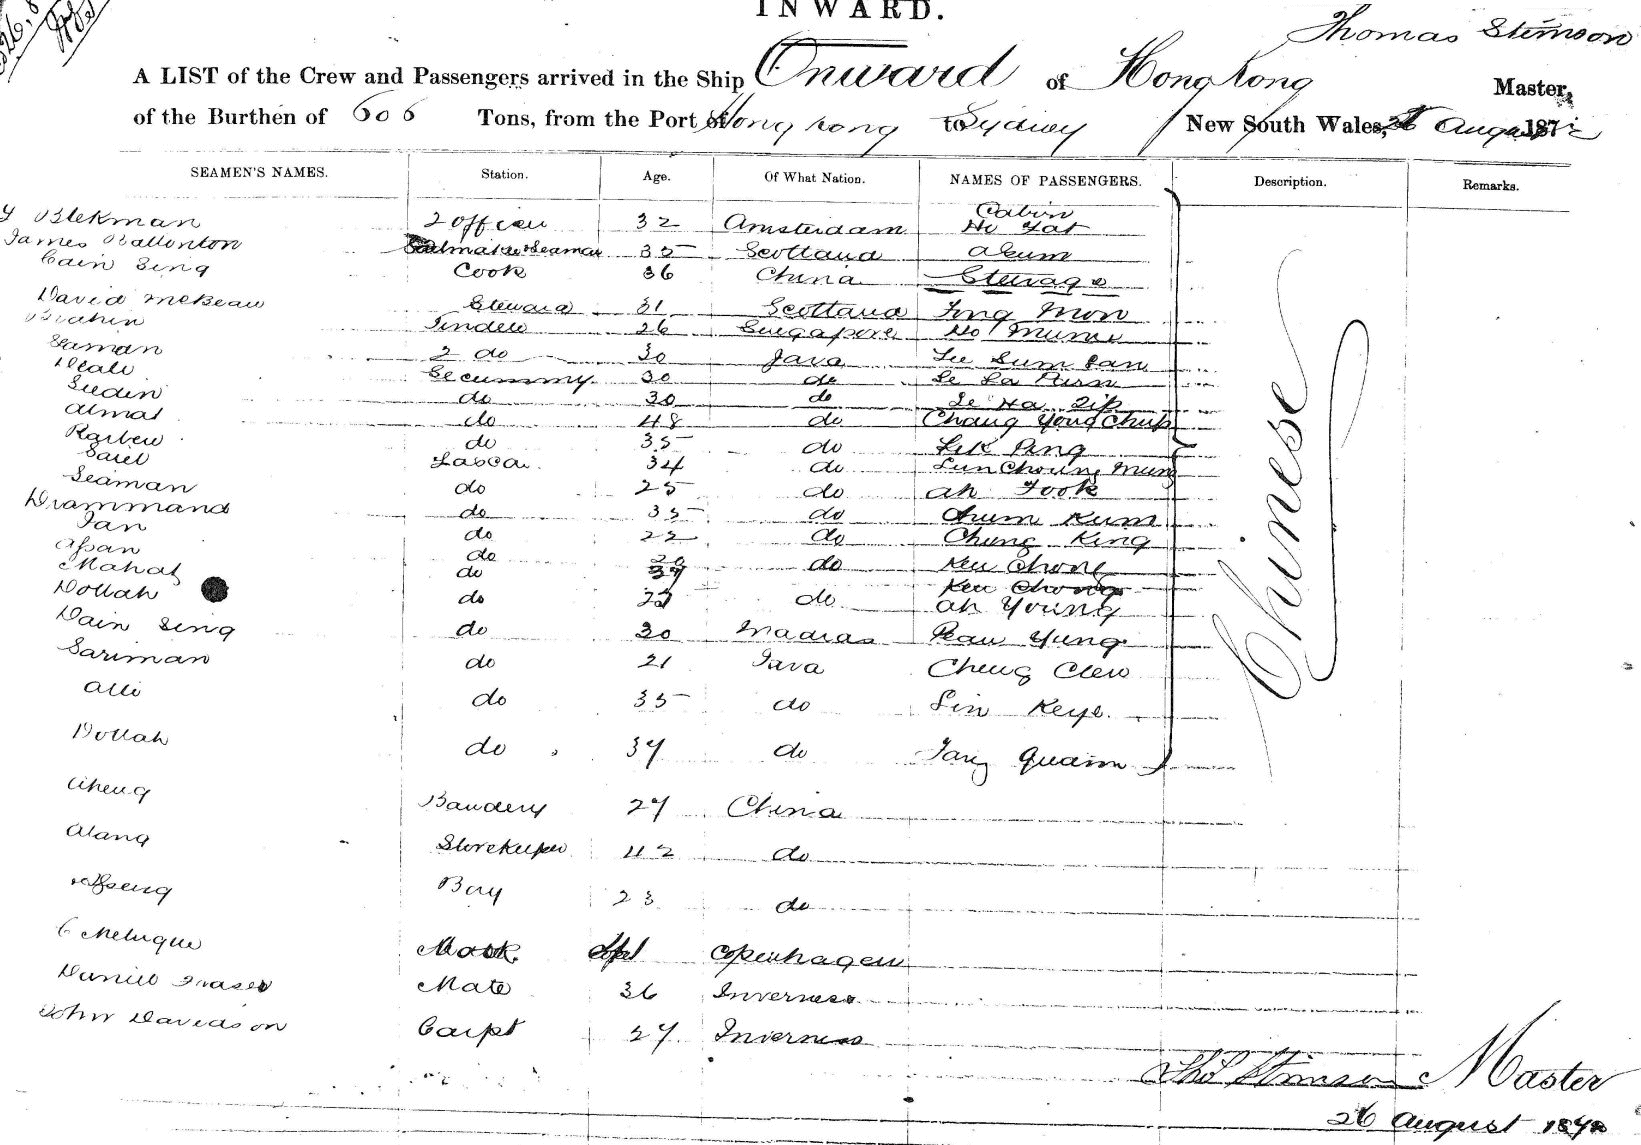 INWARD.
Thomas Stimson
A LIST of the Crew and Passengers arrived in the Ship Onward of Hong Kong Master,
of the Burthen of 606 Tons, from the Port of Hong Kong to Sydney New South Wales, 26 August 1872
SEAMEN'S NAMES. Station. Age. Of What Nation. NAMES OF PASSENGERS. Description. Remarks.
Cabin
Blekman 2 officer 32 Amsterdam Ho Yat
James Ballonton Sailmaker & Seaman 35 Scotland Akum
Cain Sing Cook 36 China Steerage
David McBean Steward 31 Scotland Fong Mon
Brahin Tindell 26 Singapore Ho Mume
Saman 2 do 30 Java Lee Sum Can
Secummy 30 do Le La
Sudin do 30 do Le Ha Zip
Almat do 48 do Chang Yong Chup
do 35 do Lik Ping
Lascar 34 do Lun Choung Mung
Seaman do 25 do Ah Fook
Drammand do 35 do Chum Kum
Jan do 22 do Chung King
Assan do 28 do Keu Chong
Mahat do 37 Keu Chong
Dollah do do Ah Young
Dain Sing do 30 Madras Peau Yung
Sariman do 21 Java Cheug Clew
Alli do 35 do Lin Keye
Dollah do 37 do Tang Quaim
Chinese
Aheng Bandery 27 China
Alang Storekeeper 42 do
Boy 23 do
C Meluque Copenhagen
Daniel Fraser Mate 36 Inverness
John Davidson Carpt 27 Inverness
Thos Stimson Master
26 August 1872